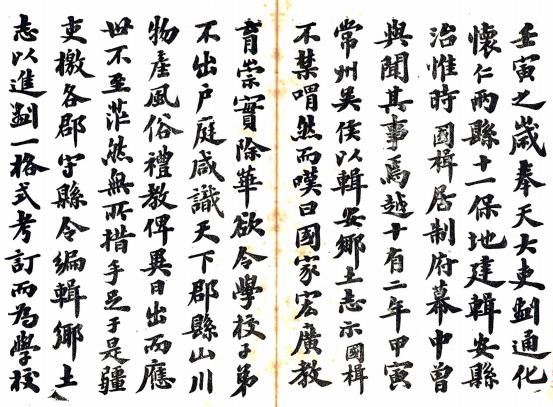 壬寅之歲奉天大吏劃通化
懷仁兩縣十一保地建輯安縣
治惟時國楫居制府幕中曾
與聞其事焉越十有二年甲寅
常州吳侯以輯安鄉土志示國楫
不禁喟然而嘆曰國家宏廣教
育崇實除華欲令學校子弟
不出戶庭咸識天下郡縣山川
物產風俗禮教俾異日出而應
世不至茫然無所措手足于是疆
吏檄各郡守縣令編輯鄉土
志以進劃一格式考訂而為學校